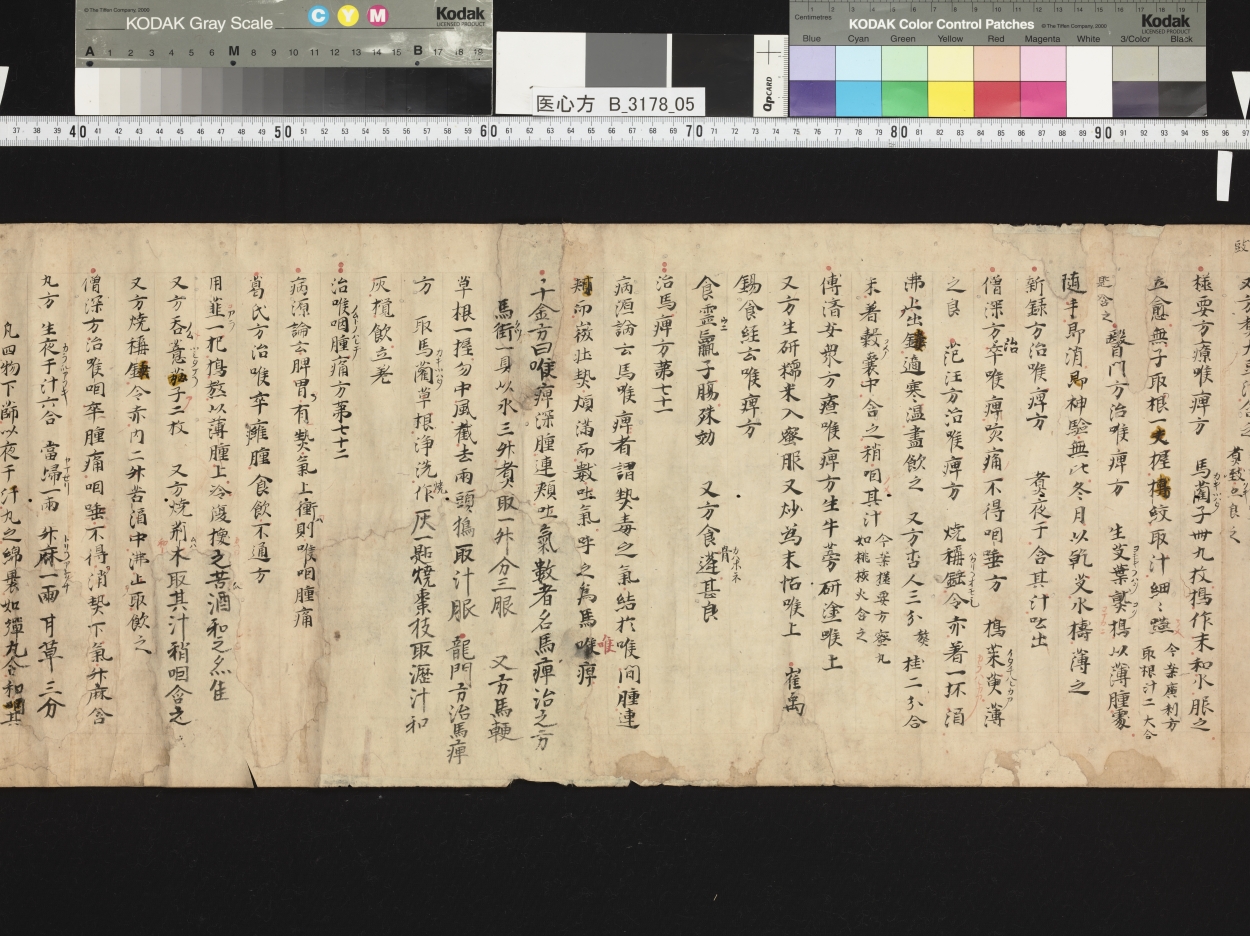 © The Tiffen Company, 2000
KODAK Gray Scale
C Y M
Kodak
LICENSED PRODUCT
A 1 2 3 4 5 6 M 8 9 10 11 12 13 14 15 B 17 18 19
医心方 B_3178_05
QPCARD
Centimetres
KODAK Color Control Patches
© The Tiffen Company, 2000
Kodak
LICENSED PRODUCT
Blue Cyan Green Yellow Red Magenta White 3/Color Black
37 38 39 40 41 42 43 44 45 46 47 48 49 50 51 52 53 54 55 56 57 58 59 60 61 62 63 64 65 66 67 68 69 70 71 72 73 74 75 76 77 78 79 80 81 82 83 84 85 86 87 88 89 90 91 92 93 94 95 96 97
様要方療喉痺方 馬藺子卌九枚搗作末和水服之
立愈無子取根一大握搗絞取汁細々 今案廣利方取根汁二大合
医門方治喉痺方 生艾葉搗以薄腫處
随手即消神驗無比冬月以乾艾水搗薄之
新録方治喉痺方 煑夜干含其汁吐出
僧深方治卒喉痺咳痛不得咽唾方 搗茱萸薄
之良 范汪方治喉痺方 燒秤錘令赤著一坏酒
沸止出錘適寒温盡飲之 又方杏人三分 桂二分合
末著穀囊中含之稍咽其汁 今案様要方蜜丸如桃核大含之
傳済安衆方療喉痺方生牛蒡研塗喉上
又方生研糯米入蜜服又炒為末怗喉上 崔禹
錫食経云喉痺方
食霊蠃子腸殊効 又方食蓬甚良
治馬痺方第七十一
病源論云馬喉痺者謂熱毒之氣結於喉間腫連
頬而微壮熱煩滿而數吐氣呼之為馬喉痺
千金方曰喉痺深腫連頬吐氣數者名馬痺治之方
馬銜一具以水三升煑取一升分三服 又方馬鞭
草根一握勿中風截去兩頭搗取汁服 龍門方治馬痺
方 取馬藺草根浄洗燒作灰一匙燒棗枝取瀝汁和
灰攪飲立差
治喉咽腫痛方第七十二
病源論云脾胃有熱氣上衝則喉咽腫痛
葛氏方治喉卒癰腫食飲不通方
用韮一把搗熬以薄腫上冷復換之苦酒和之亦佳
又方呑薏苡子二枚 又方燒荊木取其汁稍咽含之
又方燒秤錘令赤内二升苦酒中沸止取飲之
僧深方治喉咽卒腫痛咽唾不得消熱下氣升麻含
丸方 生夜干汁六合 當帰一兩 升麻一兩 甘草三分
凡四物下篩以夜干汁丸之綿裹如彈丸含和咽其